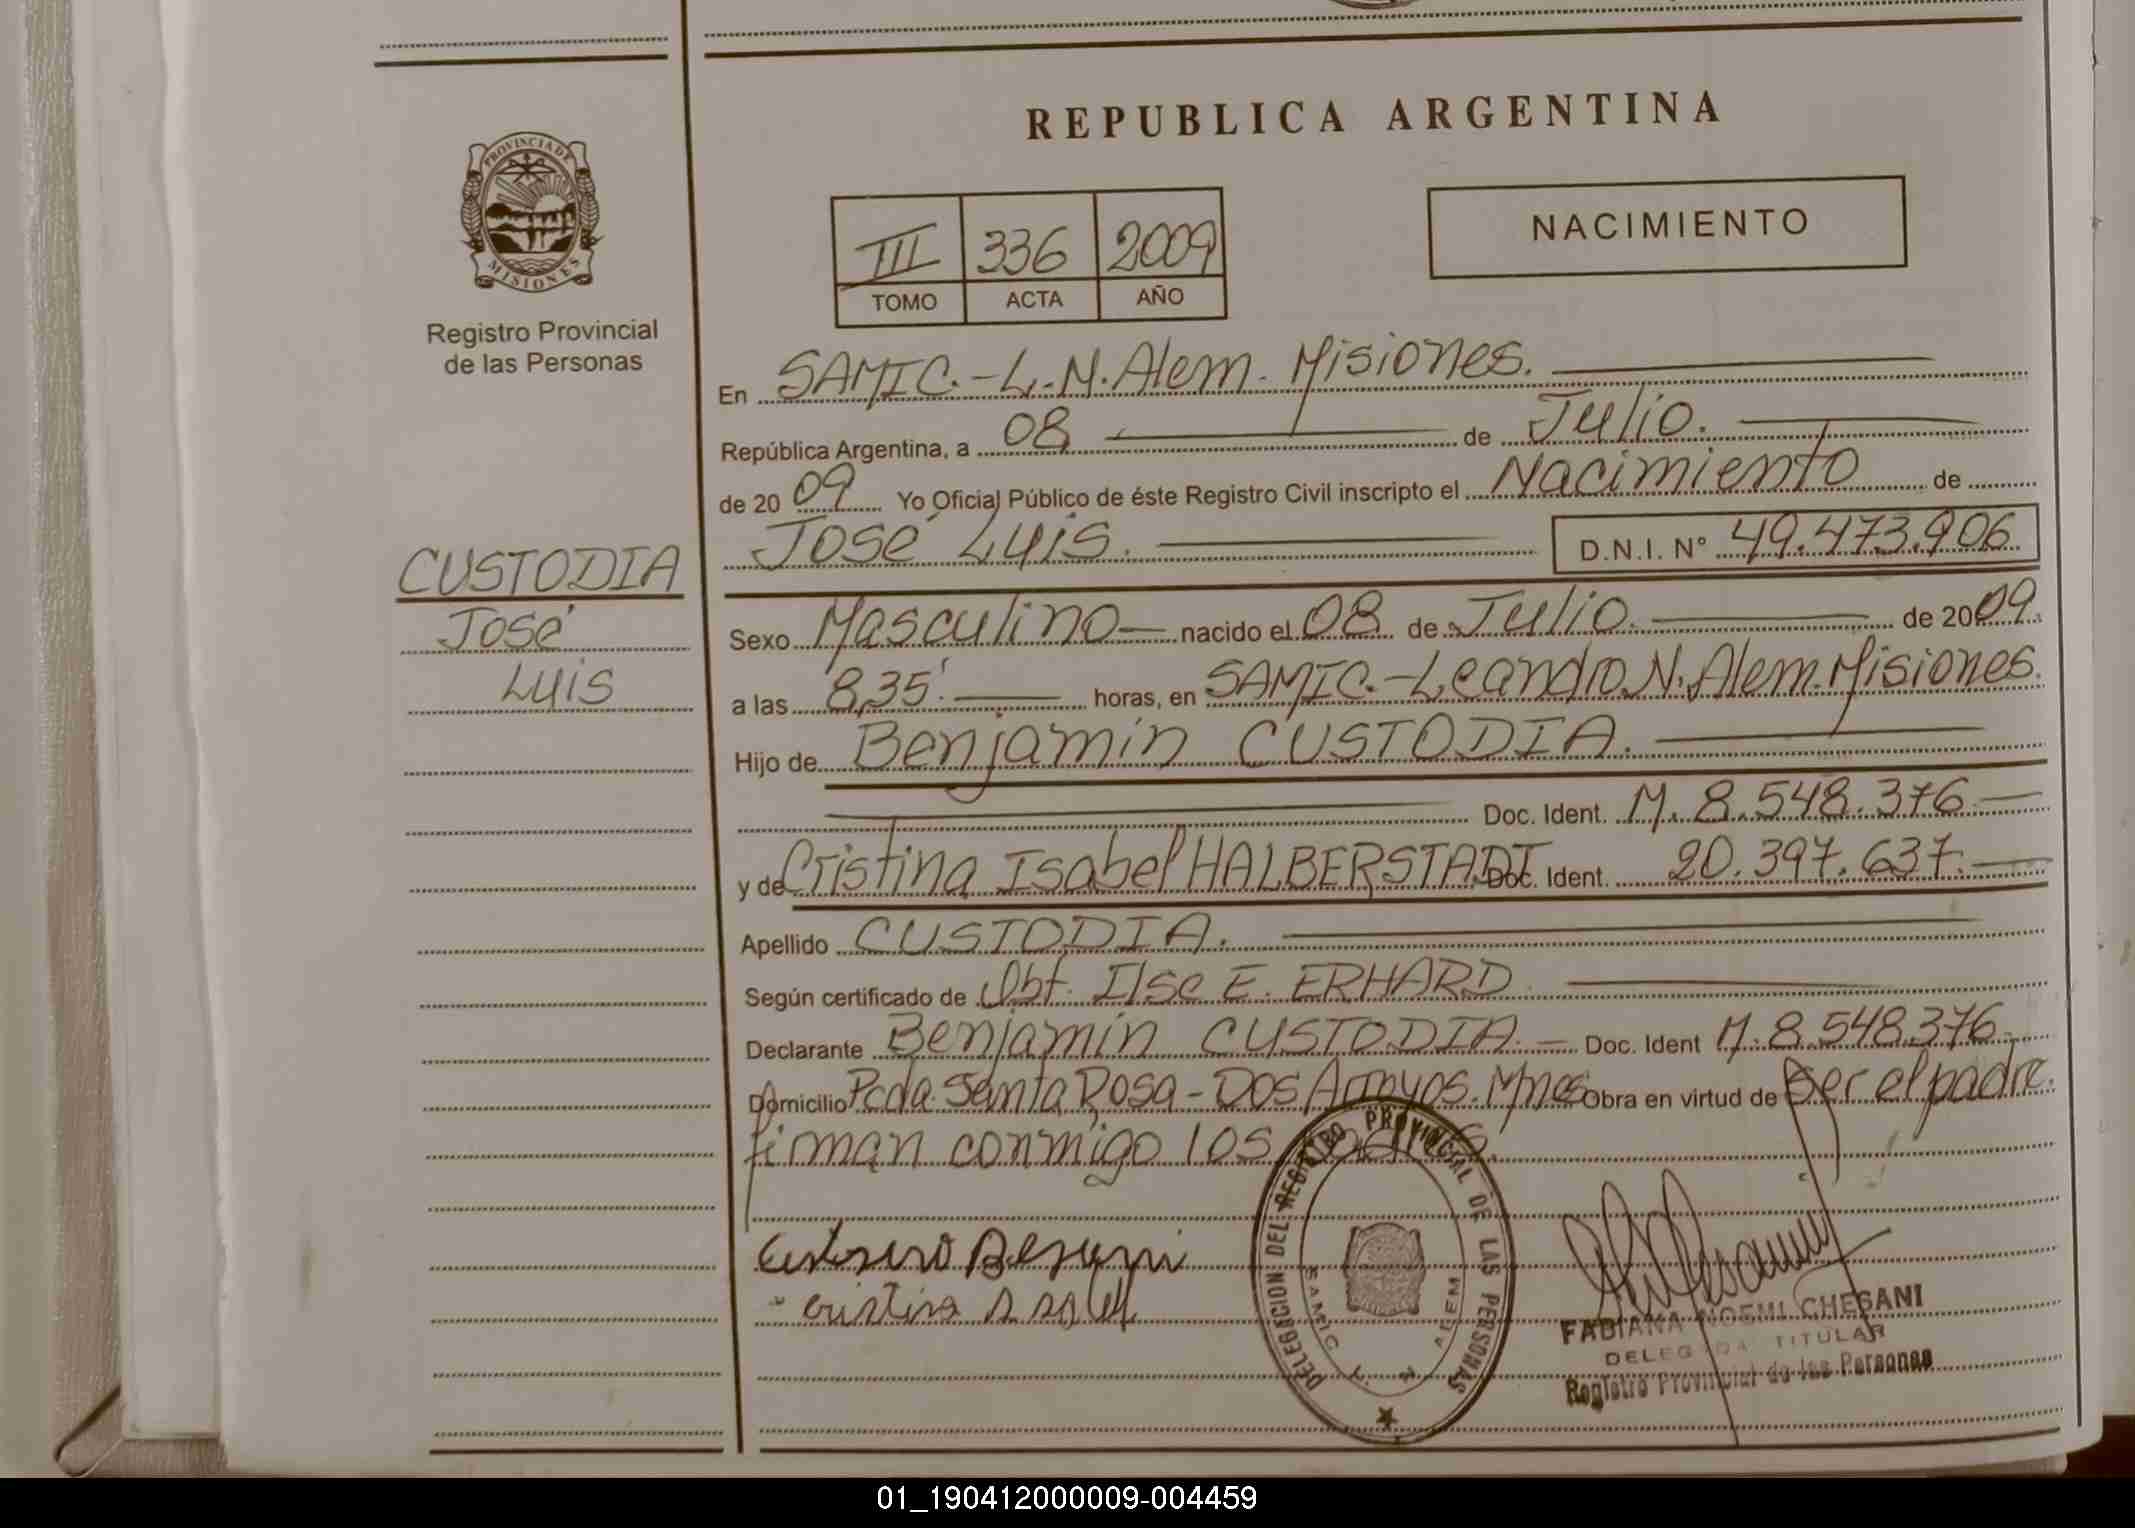 REPUBLICA ARGENTINA
PROVINCIA DE
MISIONES
Registro Provincial
de las Personas
NACIMIENTO
III 336 2009
TOMO ACTA AÑO
En SAMIC.-L.N.Alem. Misiones.
República Argentina, a 08 de Julio.
de 2009 Yo Oficial Público de éste Registro Civil inscripto el Nacimiento de
José Luis. D.N.I. Nº 49.473.906
CUSTODIA
José
Luis
Sexo Masculino nacido el 08 de Julio. de 2009.
a las 8,35'. horas, en SAMIC.-Leandro.N.Alem.Misiones.
Hijo de Benjamín CUSTODIA.
Doc. Ident. M.8.548.376.
y de Cristina Isabel HALBERSTADT Doc. Ident. 20.397.637.
Apellido CUSTODIA.
Según certificado de Obt. Ilse E. ERHARD
Declarante Benjamín CUSTODIA. Doc. Ident M.8.548.376.
Domicilio Pcda. Santa Rosa - Dos Arroyos. Mnes Obra en virtud de Ser el padre.
firman conmigo los
cristina
DELEGACION DEL REGISTRO PROVINCIAL DE LAS PERSONAS
SAMIC L. N. ALEM
FABIANA NOEMI CHESANI
DELEGADA TITULAR
Registro Provincial de las Personas
01_190412000009-004459